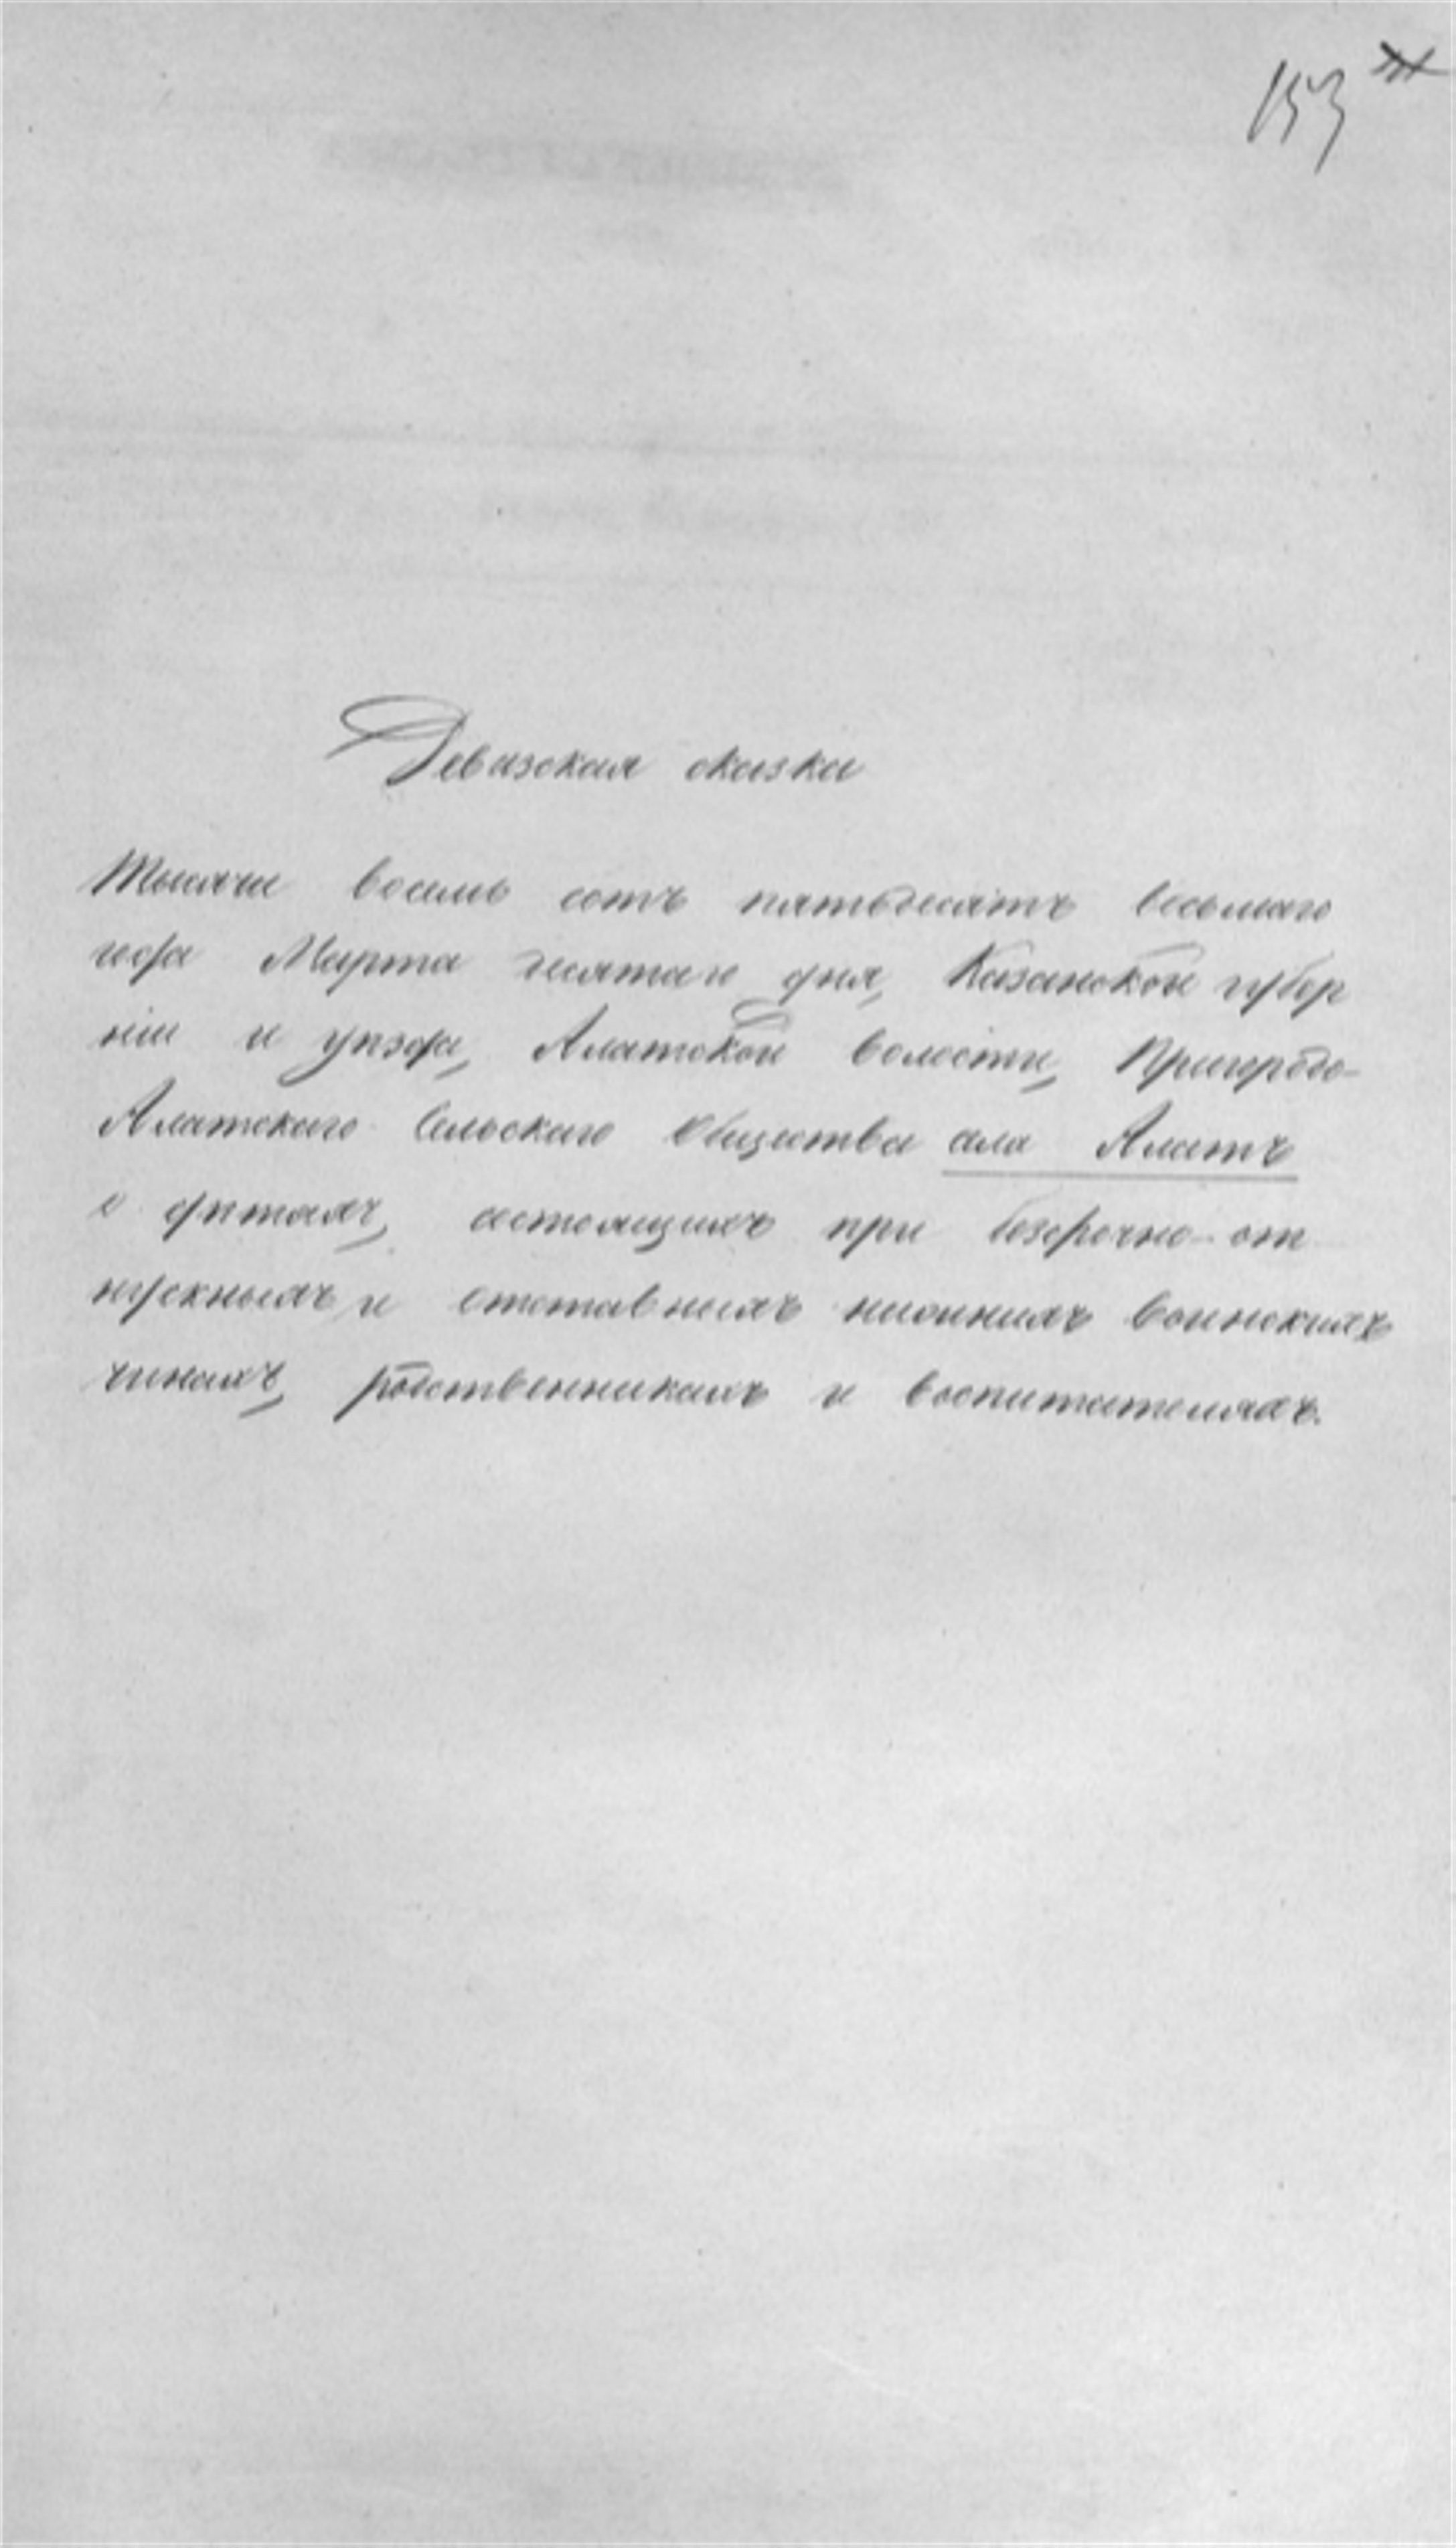 153
Ревизская сказка
Тысяча восемь сотъ пятьдесятъ восьмаго
года Марта десятаго дня, Казанской губер
ніи и уѣзда, Алатской волости, Пригородо-
Алатскаго Сельскаго Общества села Алатъ
о дѣтяхъ, состоящихъ при безсрочно-от
пускныхъ и отставныхъ нижнихъ воинскихъ
чинахъ, родственникахъ и воспитателяхъ.